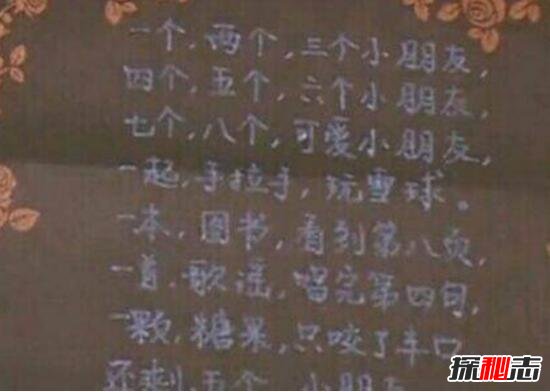 一个,两个,三个小朋友,
四个,五个,六个小朋友,
七个,八个,可爱小朋友,
一起,手拉手,玩雪球。
一本,图书,看到第八页,
一首,歌谣,唱完第四句,
一颗,糖果,只咬了半口
还剩 五个,小朋友
探秘志